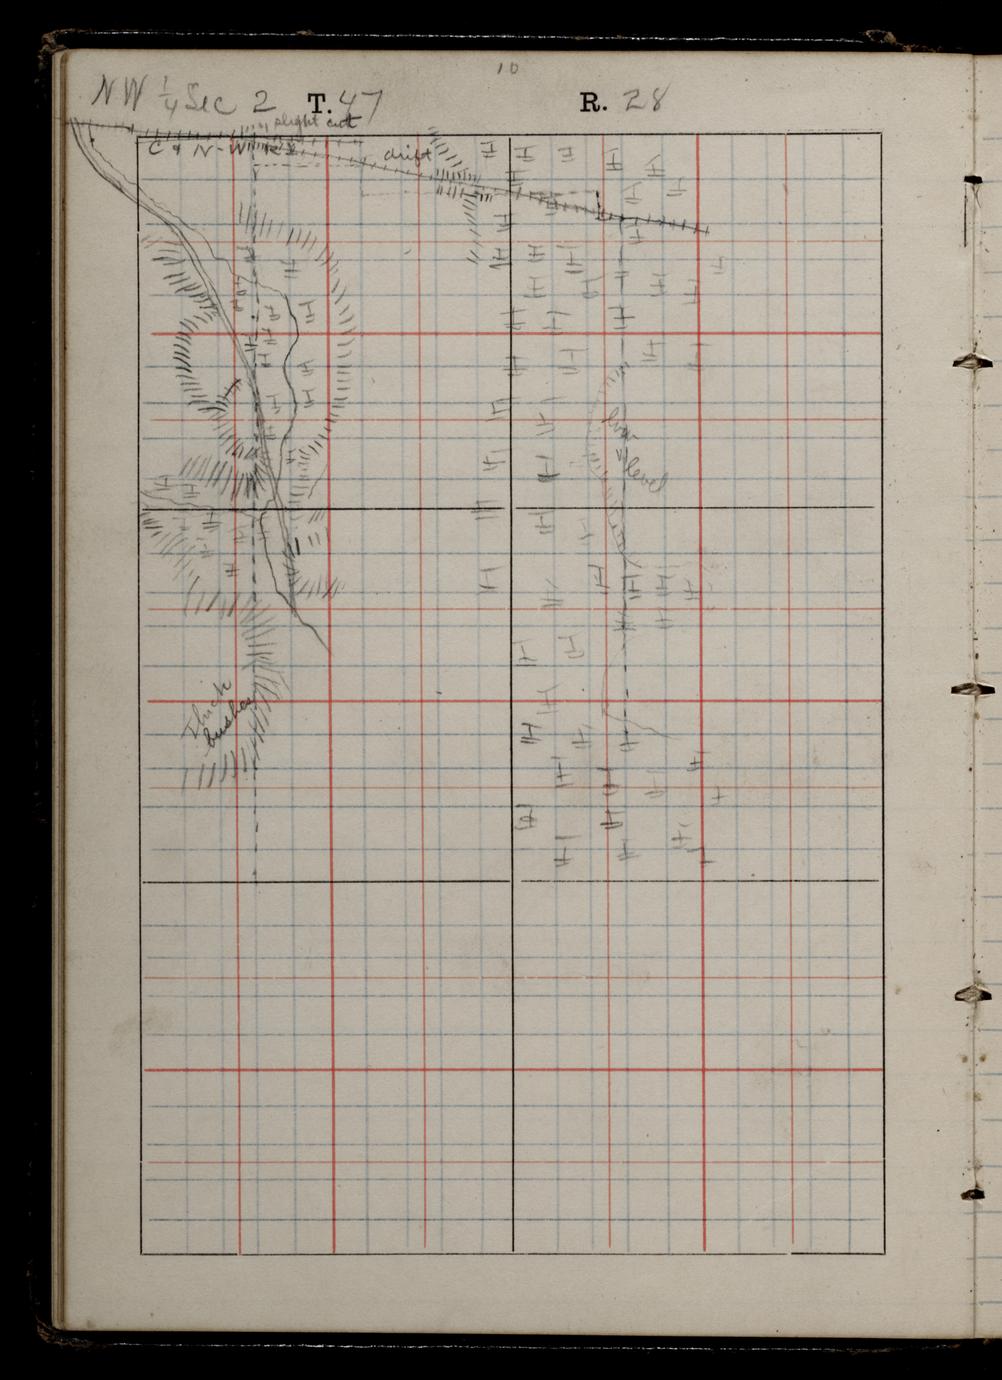 10
NW 1/4 Sec 2 T. 47 R. 28
slight cut
C & N-W Ry
drift
level
Thick
bushes